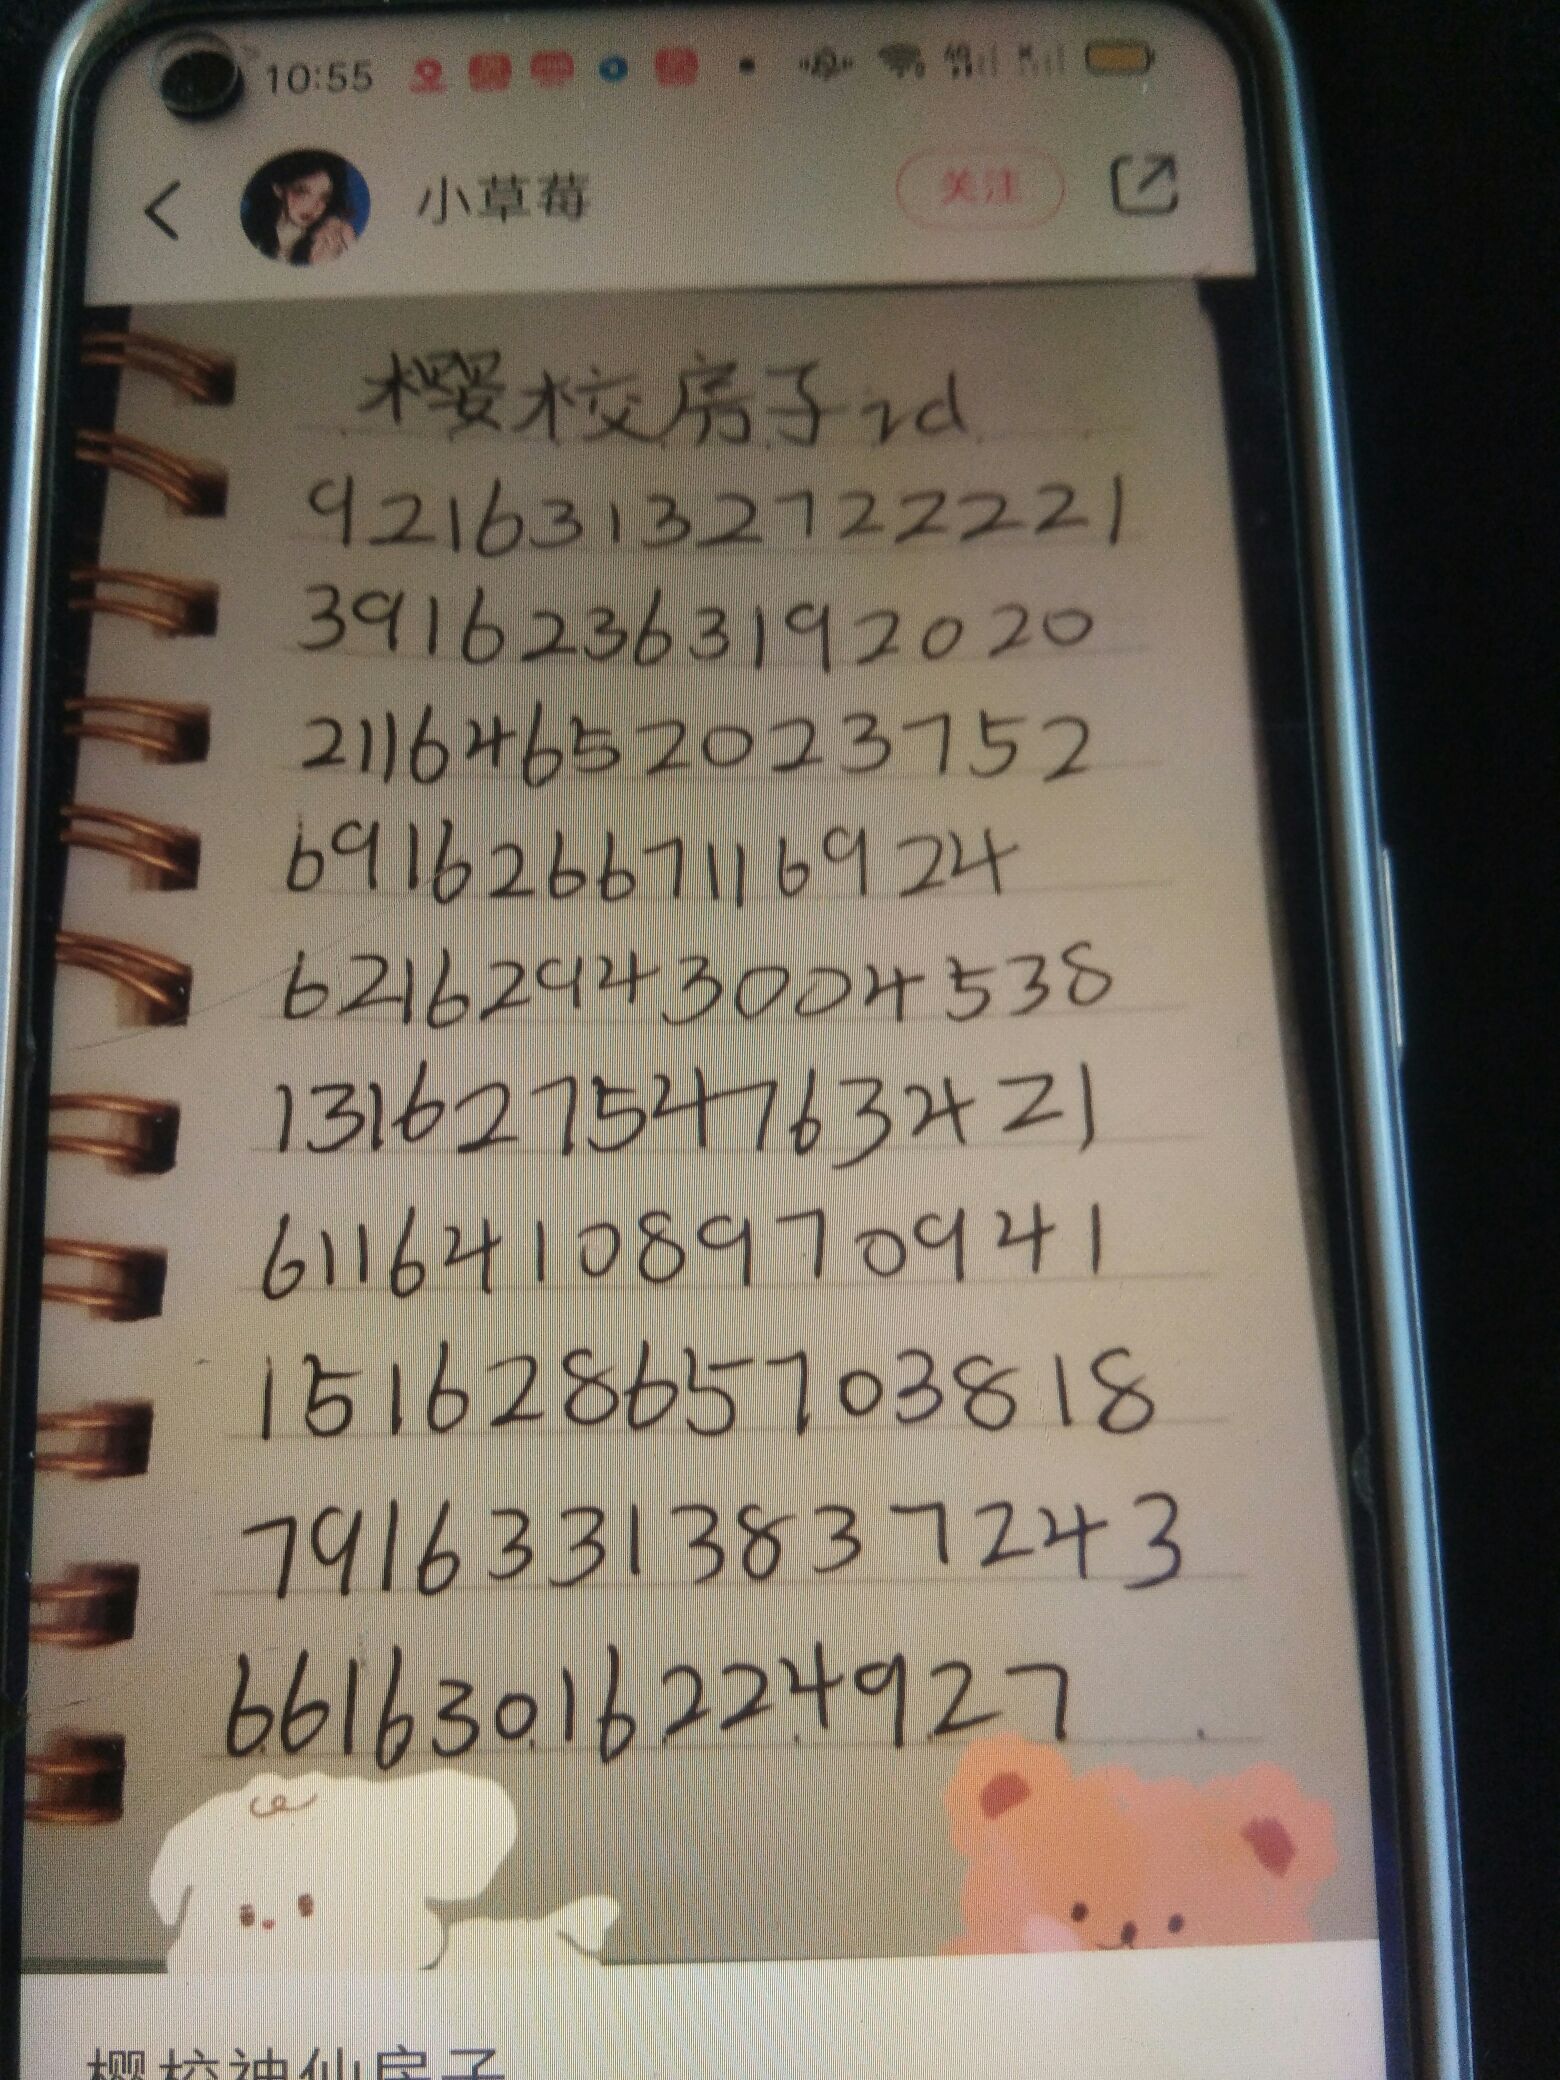 10:55
小草莓
关注
樱校房子id
921631327122221
39162363192020
21164652023752
69162667116924
62162943004538
131627547632421
61164108970941
15162865703818
79163313837243
66163016224927
樱校神仙房子